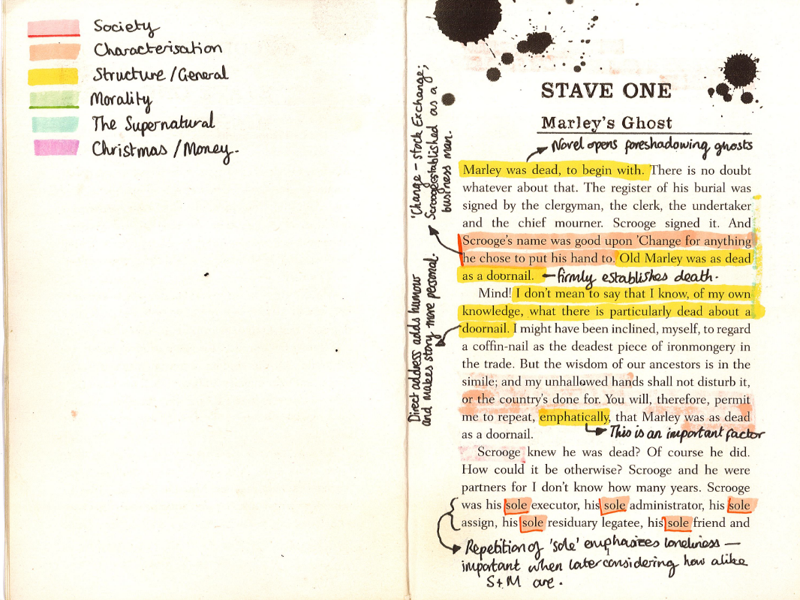 Society
Characterisation
Structure/General
Morality
The Supernatural
Christmas/Money.
STAVE ONE
Marley's Ghost
Novel opens foreshadowing ghosts
Marley was dead, to begin with. There is no doubt
whatever about that. The register of his burial was
signed by the clergyman, the clerk, the undertaker
and the chief mourner. Scrooge signed it. And
Scrooge's name was good upon 'Change for anything
he chose to put his hand to. Old Marley was as dead
as a doornail. – firmly establishes death.
'Change – stock Exchange;
Scrooge established as a
business man.
Mind! I don't mean to say that I know, of my own
knowledge, what there is particularly dead about a
doornail. I might have been inclined, myself, to regard
a coffin-nail as the deadest piece of ironmongery in
the trade. But the wisdom of our ancestors is in the
simile; and my unhallowed hands shall not disturb it,
or the country's done for. You will, therefore, permit
me to repeat, emphatically, that Marley was as dead
as a doornail.
This is an important factor
Direct address adds humour
and makes story more personal.
Scrooge knew he was dead? Of course he did.
How could it be otherwise? Scrooge and he were
partners for I don't know how many years. Scrooge
was his sole executor, his sole administrator, his sole
assign, his sole residuary legatee, his sole friend and
Repetition of 'sole' emphasizes loneliness –
important when later considering how alike
S+M are.